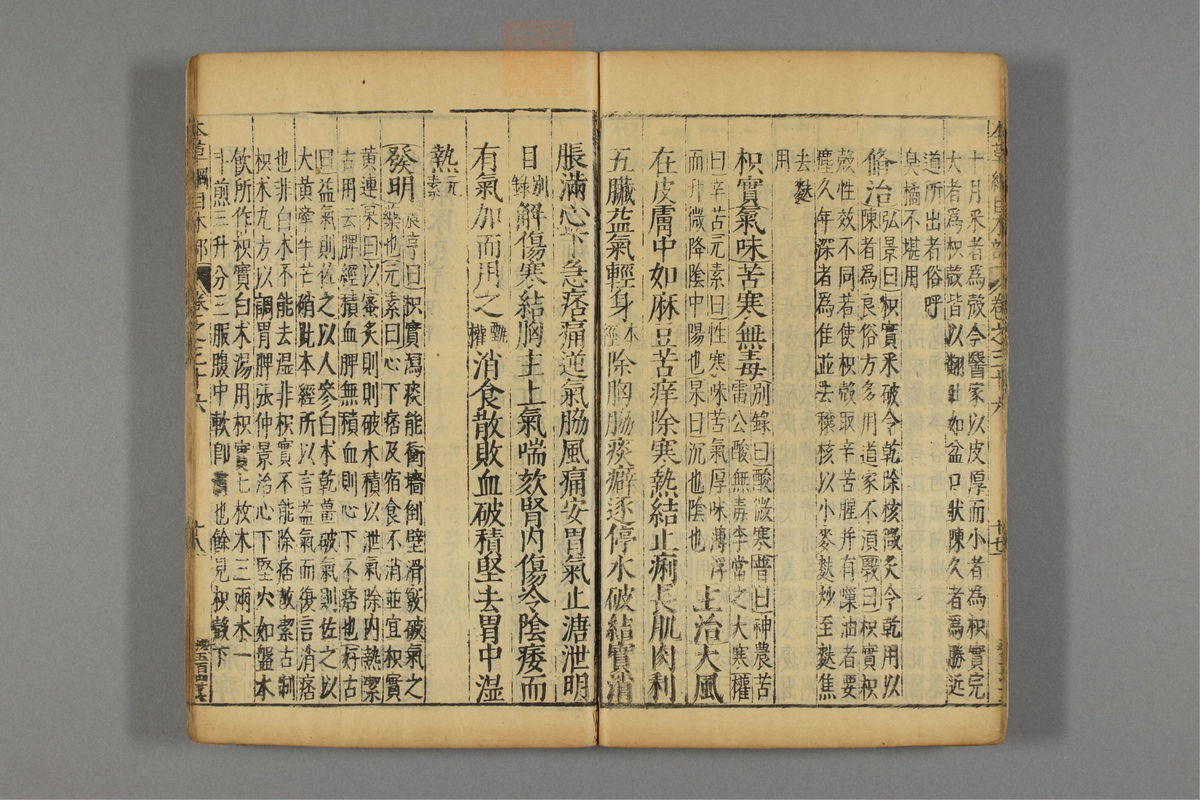 本草綱目木部 卷之三十六 廿七
十月采者為殼今醫家以皮厚而小者為枳實完
大者為枳殼皆以翻肚如盆口狀陳久者為勝近
道所出者俗呼
臭橘不堪用
修治
弘景曰枳實采破令乾除核微炙令乾用以
陳者為良俗方多用道家不須斆曰枳實枳
殼性效不同若使枳殼取辛苦腥并有隙油者要
塵久年深者為佳並去穰核以小麥麩炒至麩焦
去麩
用
枳實氣味苦寒無毒
別錄曰酸微寒普曰神農苦
雷公酸無毒李當之大寒權
曰辛苦元素曰性寒味苦氣厚味薄浮
而升微降陰中陽也杲曰沉也陰也
主治大風
在皮膚中如麻豆苦痒除寒熱結止痢長肌肉利
五臟益氣輕身
本
經
除胸脇痰癖逐停水破結實消
脹滿心下急痞痛逆氣脇風痛安胃氣止溏泄明
目
別
錄
解傷寒結胸主上氣喘欬腎内傷冷陰痿而
有氣加而用之
甄
權
消食散敗血破積堅去胃中湿
熱
元
素
發明
震亨曰枳實瀉痰能衝墻倒壁滑竅破氣之
藥也元素曰心下痞及宿食不消並宜枳實
黄連杲曰以蜜炙用則破水積以泄氣除内熱潔
古用去脾經積血脾無積血則心下不痞也好古
曰益氣則佐之以人參白术乾薑破氣則佐之以
大黄牽牛芒硝此本經所以言益氣而復言消痞
也非白术不能去湿非枳實不能除痞故潔古制
枳术丸方以調胃脾張仲景治心下堅大如盤水
飲所作枳實白术湯用枳實七枚术三兩水一
斗煎三升分三服腹中軟卽消也餘見枳殼下
本草綱目木部 卷之三十六 廿八